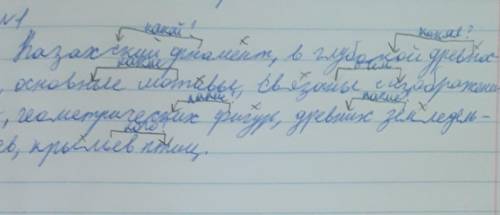 №1
какой? какая?
Казахский орнамент, в глубокой древнос
какие
, основные мотивы, связаны с изображени
какие какие
, геометрических фигур, древних земледель-
кого?
ев, крыльев птиц.